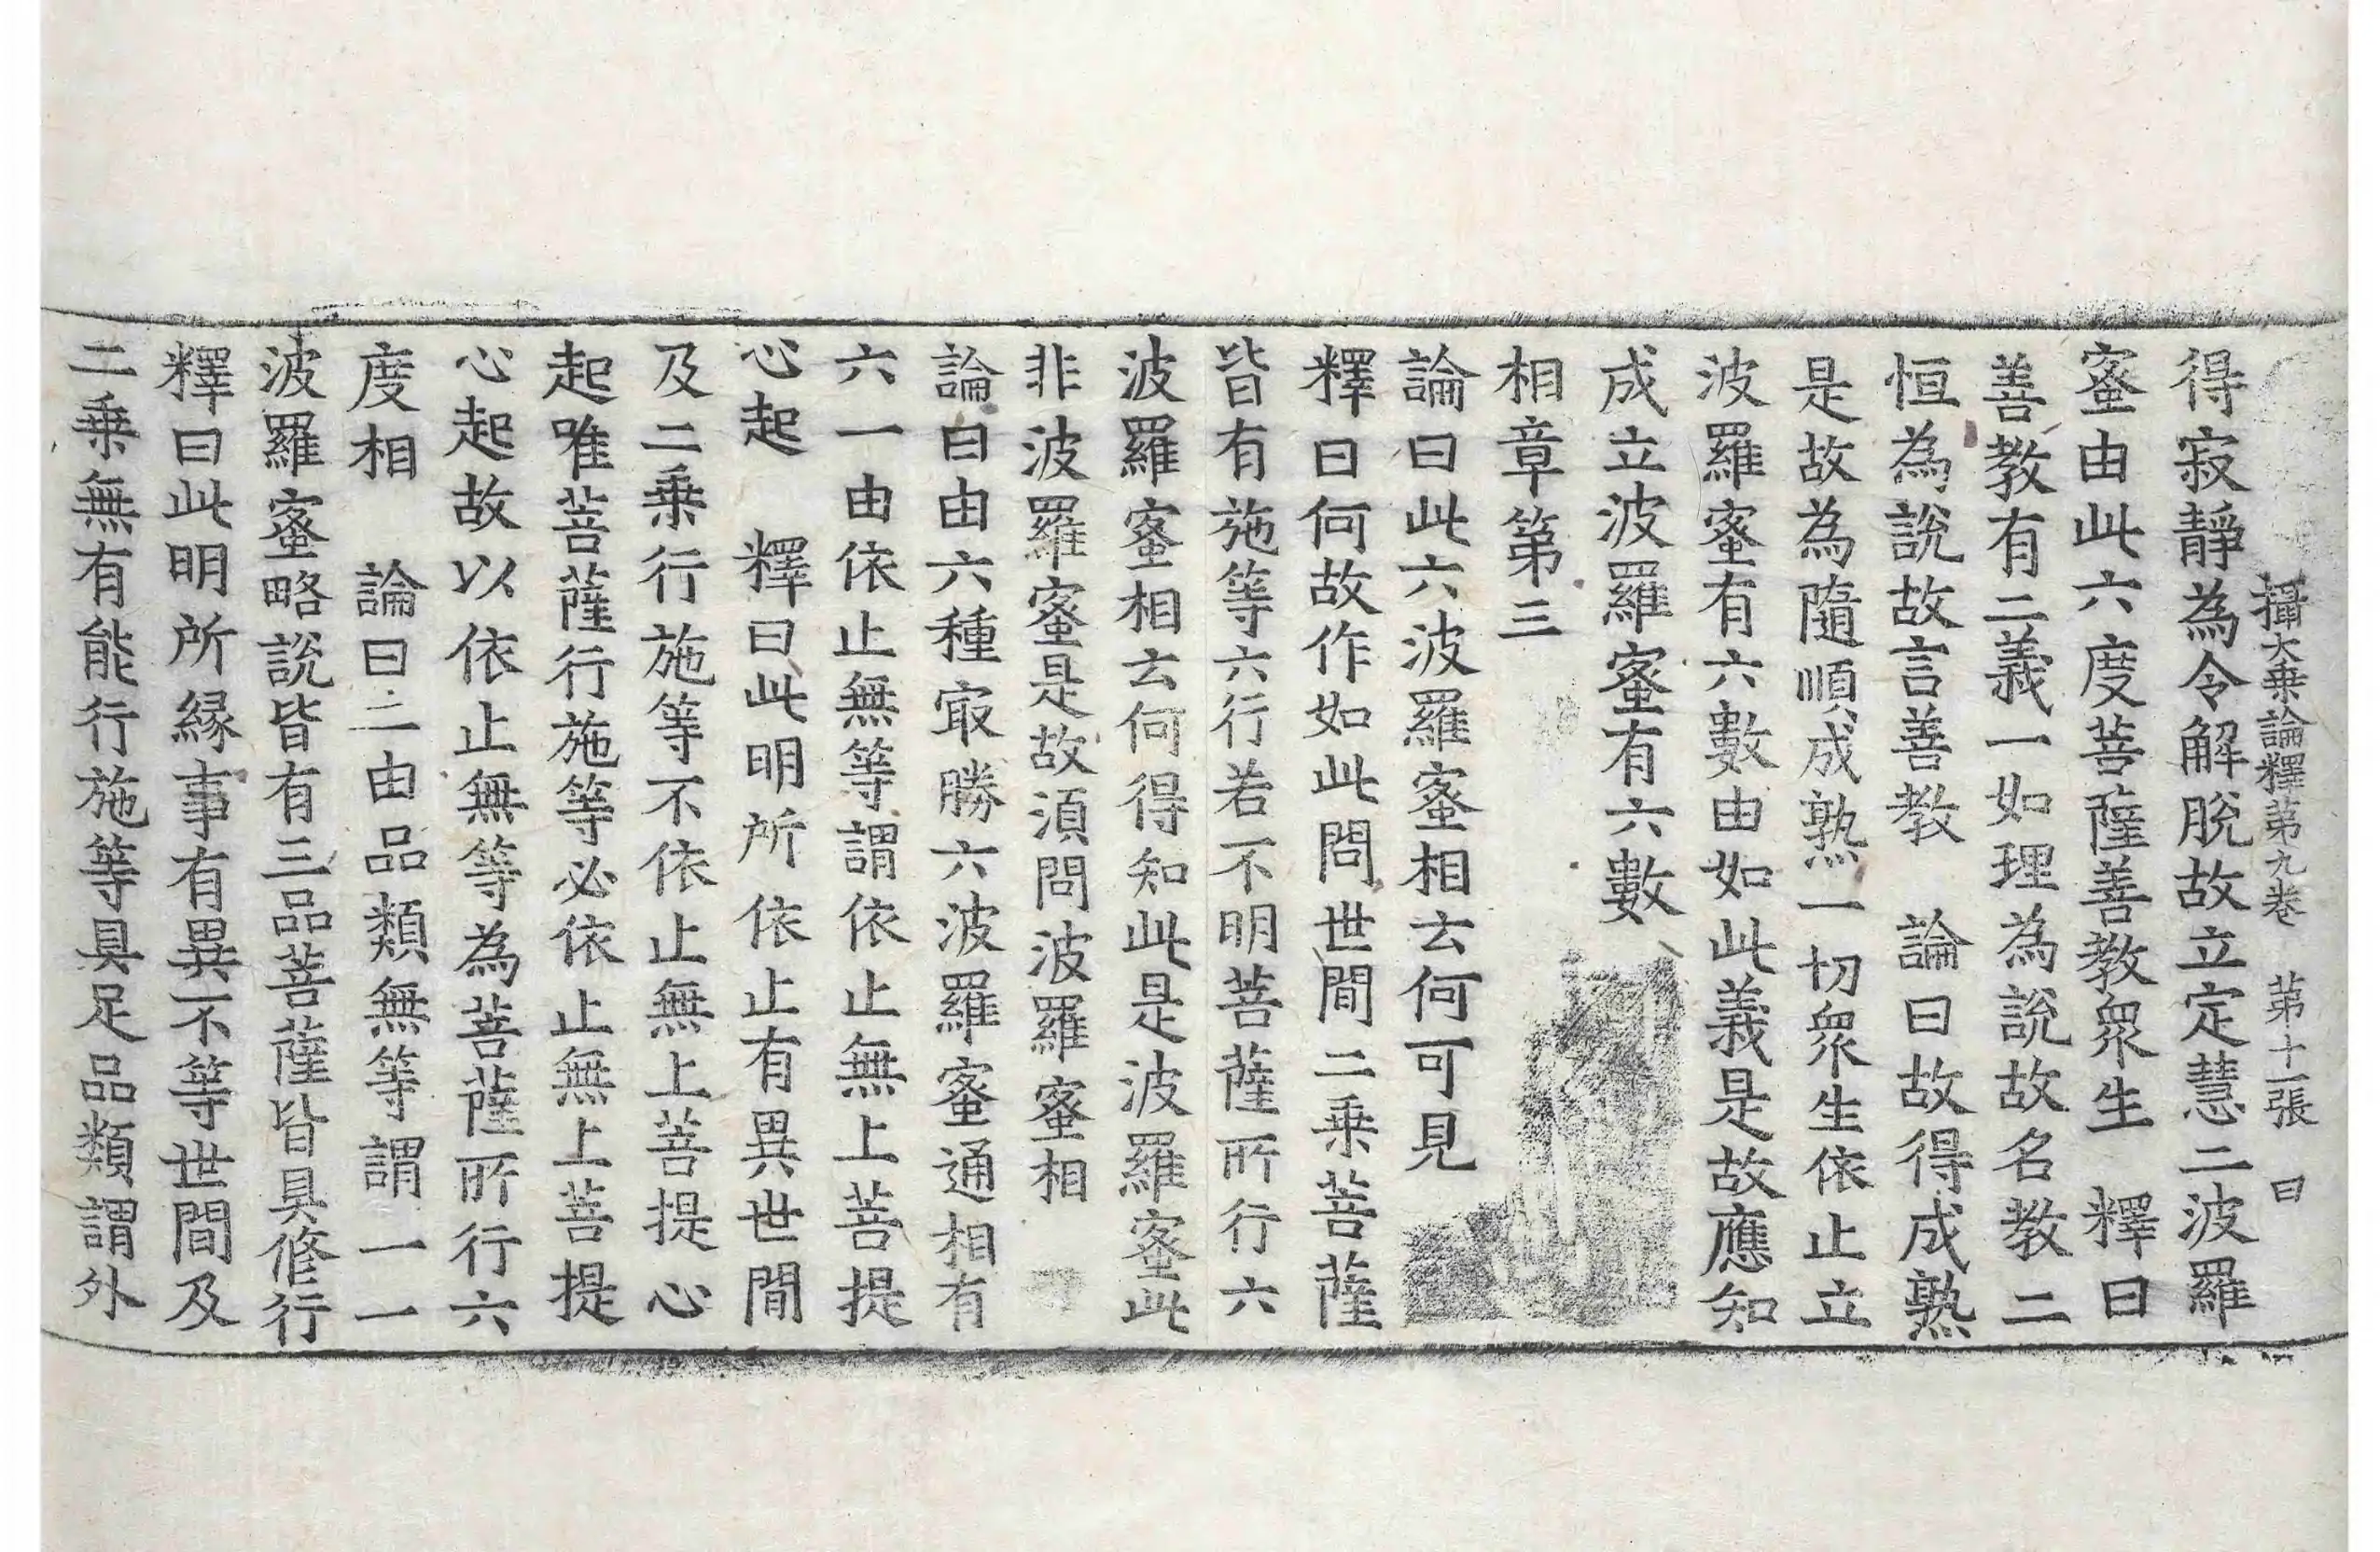 攝大乗論釋第九卷　第十一張　曰
得寂靜為令解脫故立定慧二波羅
蜜由此六度菩薩善教衆生　釋曰
善教有二義一如理為說故名教二
恒為說故言善教　論曰故得成熟
是故為隨順成熟一切衆生依止立
波羅蜜有六數由如此義是故應知
成立波羅蜜有六數
相章第三
論曰此六波羅蜜相云何可見
釋曰何故作如此問世間二乗菩薩
皆有施等六行若不明菩薩所行六
波羅蜜相云何得知此是波羅蜜此
非波羅蜜是故須問波羅蜜相
論曰由六種㝡勝六波羅蜜通相有
六一由依止無等謂依止無上菩提
心起　釋曰此明所依止有異世間
及二乗行施等不依止無上菩提心
起唯菩薩行施等必依止無上菩提
心起故以依止無等為菩薩所行六
度相　論曰二由品類無等謂一一
波羅蜜略說皆有三品菩薩皆具修行
釋曰此明所縁事有異不等世間及
二乗無有能行施等具足品類謂外